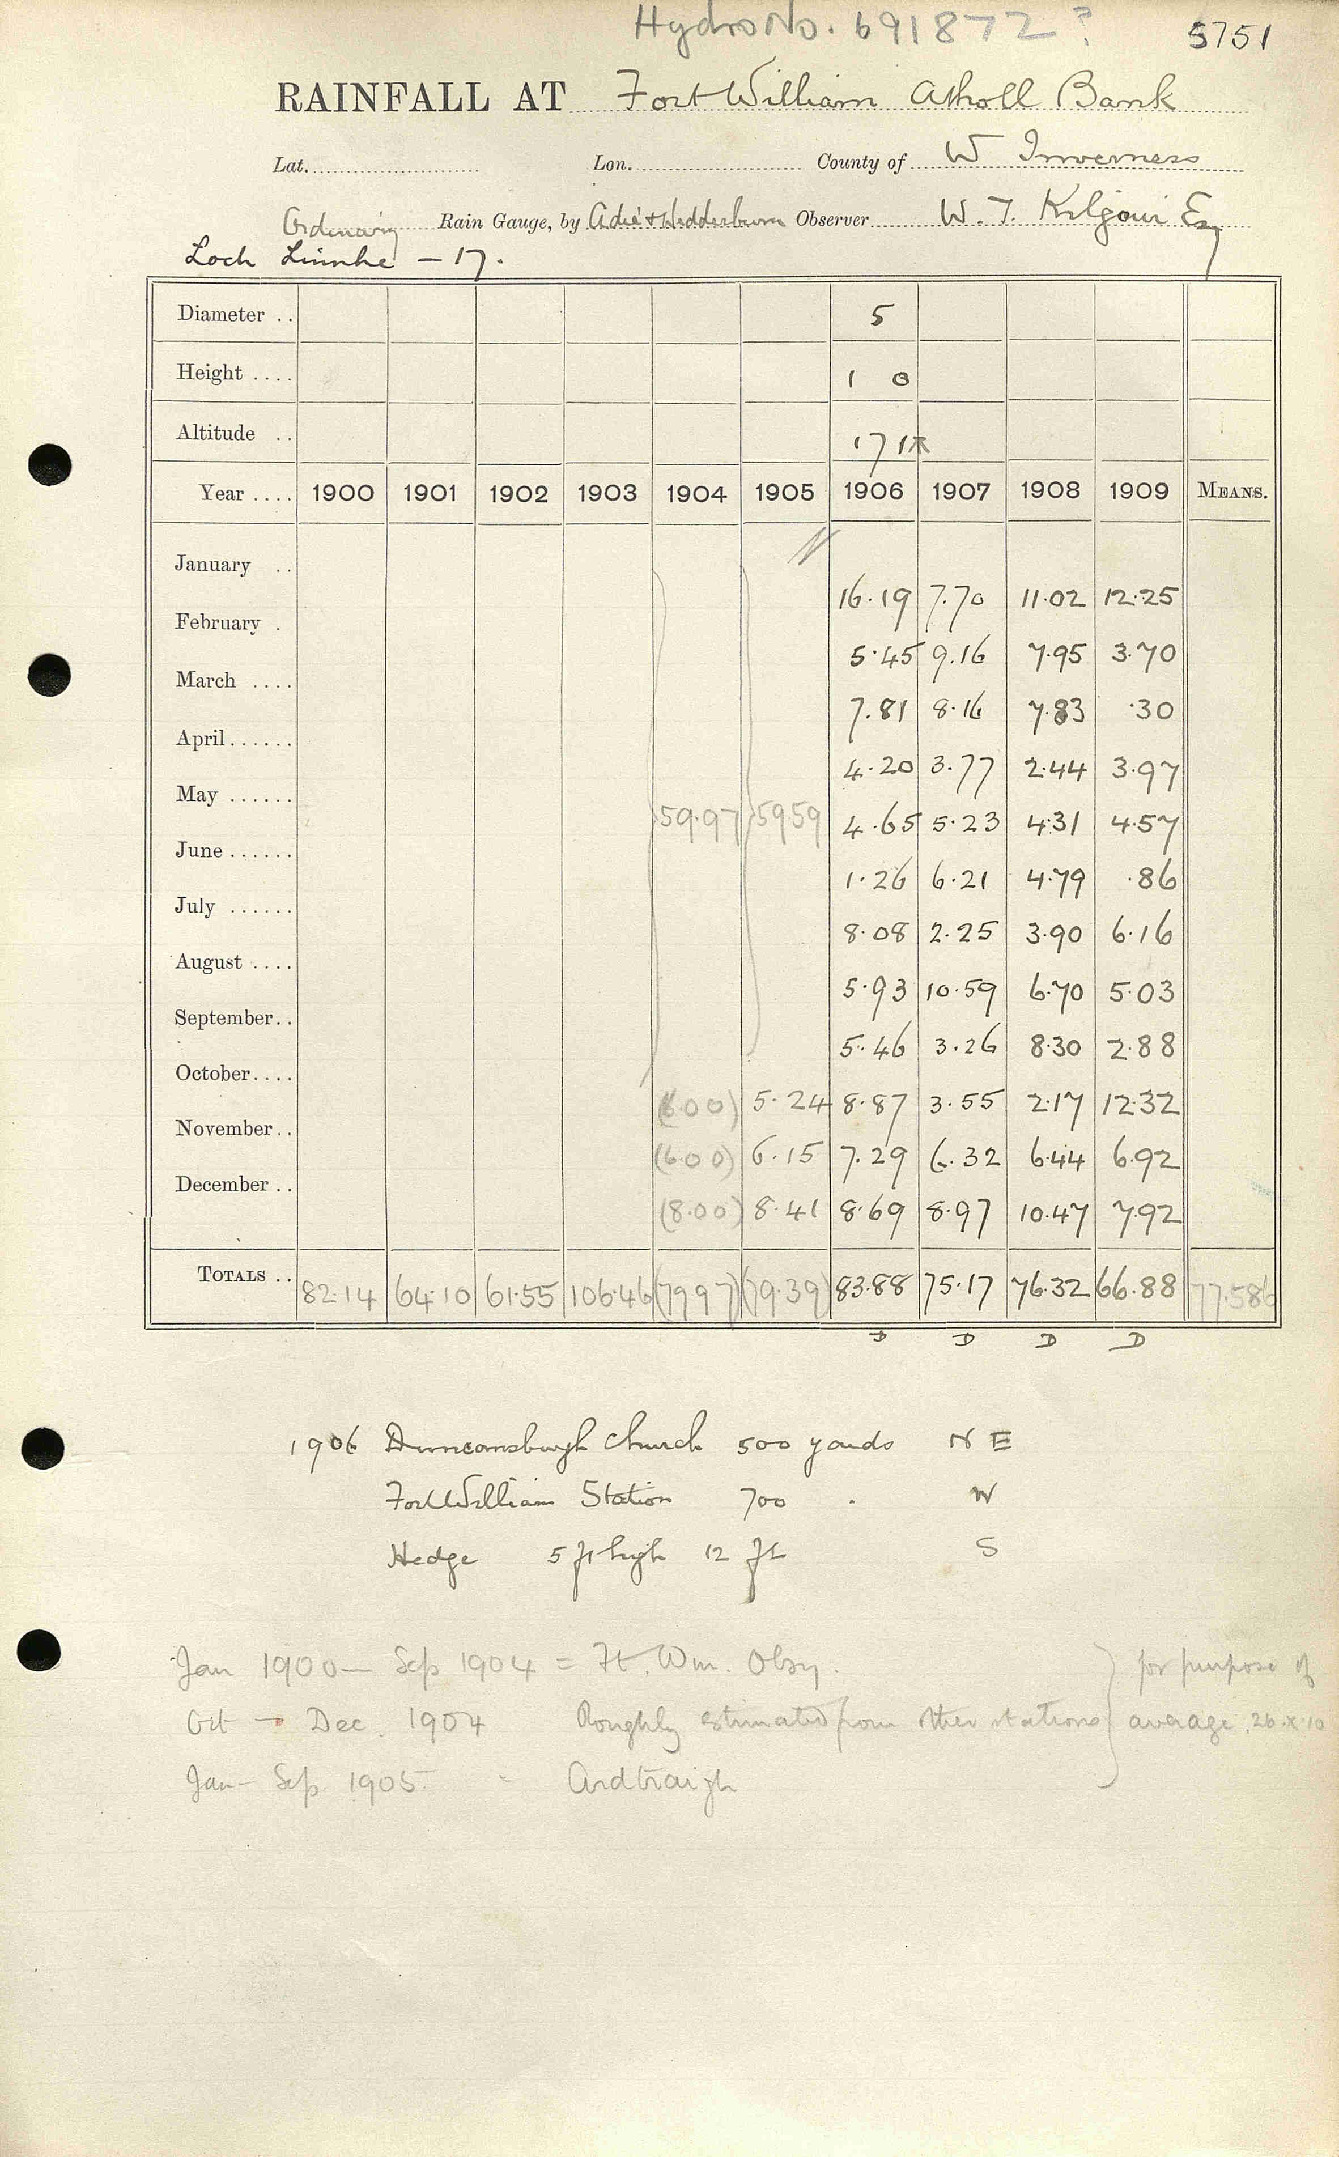 Hydro No. 691872 ? 5751
RAINFALL AT Fort William Atholl Bank
Lat. Lon. County of W Inverness
Ordinary Rain Gauge, by Adie & Wedderburn Observer W. T. Kilgour Esq
Loch Linnhe – 17.
Diameter .. 5
Height .... 1 0
Altitude .. 171
Year .... 1900 1901 1902 1903 1904 1905 1906 1907 1908 1909 MEANS.
January .. 16.19 7.70 11.02 12.25
February . 5.45 9.16 7.95 3.70
March .... 7.81 8.16 7.83 .30
April...... 4.20 3.77 2.44 3.97
May ...... 59.97 59.59 4.65 5.23 4.31 4.57
June ...... 1.26 6.21 4.79 .86
July ...... 8.08 2.25 3.90 6.16
August .... 5.93 10.59 6.70 5.03
September.. 5.46 3.26 8.30 2.88
October.... (6.00) 5.24 8.87 3.55 2.17 12.32
November.. (6.00) 6.15 7.29 6.32 6.44 6.92
December .. (8.00) 8.41 8.69 8.97 10.47 7.92
TOTALS .. 82.14 64.10 61.55 106.46 (79.97) (79.39) 83.88 75.17 76.32 66.88 77.586
D D D D
1906 Duncansburgh Church 500 yards N E
Fort William Station 700 . W
Hedge 5 ft high 12 ft S
Jan 1900 – Sep 1904 = Ft. Wm. Obsy. for purpose of
Oct – Dec. 1904 Roughly estimated from other stations average, 26.x.10
Jan – Sep 1905. Ardtraigh